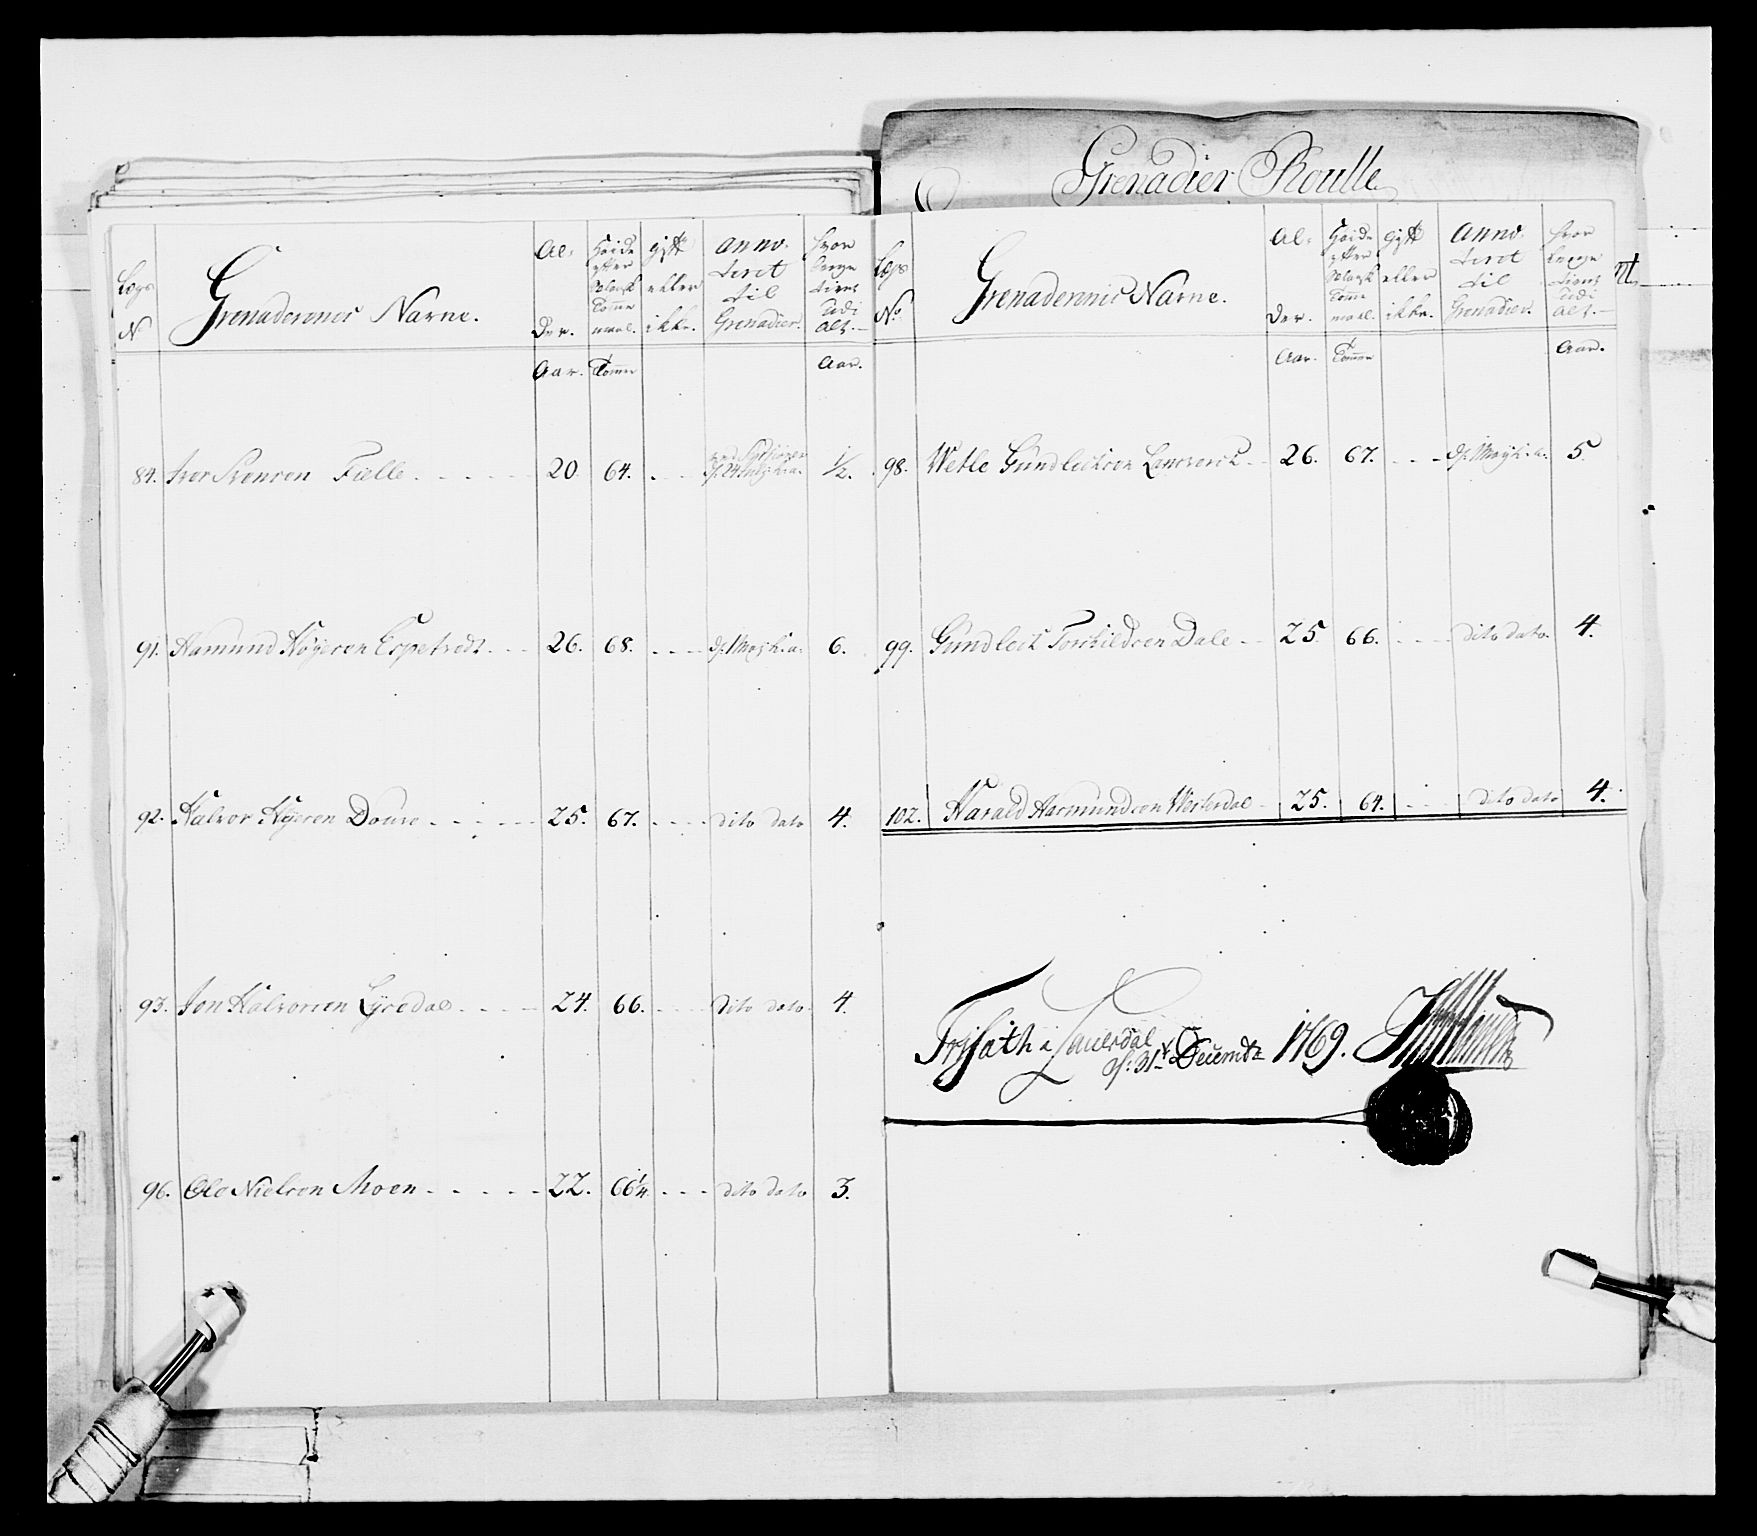 Grenadier Roulle
Lægs
N
Grenaderenes Navne.
Al-
der.
Høide
efter
Tomme
maal.
gift
eller
ikke.
anno-
teret
til
Grenadier.
hvor
længe
tient
udi
alt.
Aar.
Tommer
Aar.
84. Iver Svensen Fielle 20 64. 1/2.
91. Aamund Høyesen Espetvedt 26. 68. 6.
92. Halvor Høyesen Doure 25. 67. dito dato 4.
93. Jon Halvorsen Lyredal 24. 66. dito dato 4.
96. Ole Nielsen Moen 22. 66 1/4 dito dato 3.
Lægs
No
Grenadernnis Navne.
Al-
der.
Høide
efter
Tomme
maal.
gift
eller
ikke.
anno-
teret
til
Grenadier.
hvor
længe
tient
udi
alt.
Aar.
Tommer
Aar.
98. Wetle Gundleiksen 26. 67. 5.
99. Gundleik Torkildsen Dale 25. 66. dito dato. 4.
102. Harald Aamundsen Westerdal 25. 64. dito dato 4.
Laurdal
d: 31te Decembr 1769.